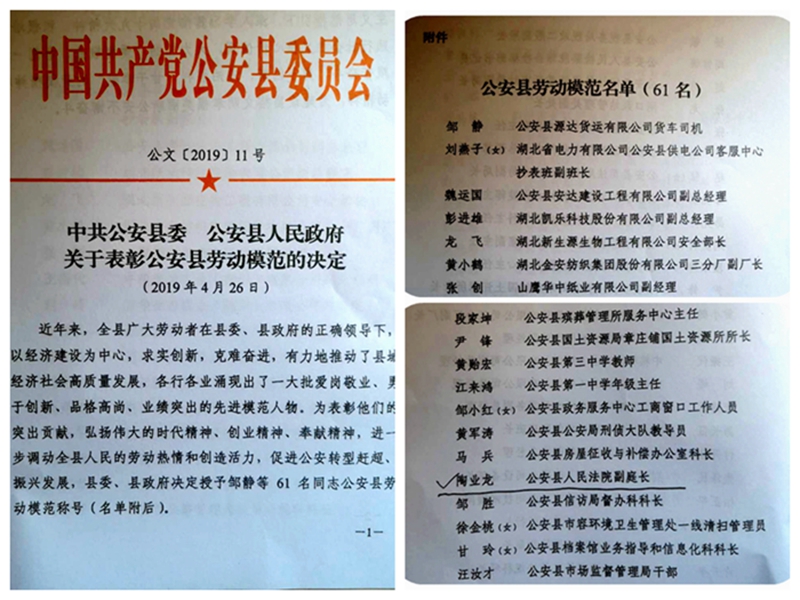 中国共产党公安县委员会
公文〔2019〕11号
中共公安县委 公安县人民政府
关于表彰公安县劳动模范的决定
(2019年4月26日)
近年来，全县广大劳动者在县委、县政府的正确领导下，
以经济建设为中心，求实创新，克难奋进，有力地推动了县域
经济社会高质量发展，各行各业涌现出了一大批爱岗敬业、勇
于创新、品格高尚、业绩突出的先进模范人物。为表彰他们的
突出贡献，弘扬伟大的时代精神、创业精神、奉献精神，进一
步调动全县人民的劳动热情和创造活力，促进公安转型赶超、
振兴发展，县委、县政府决定授予邹静等 61 名同志公安县劳
动模范称号（名单附后）。
—1—
附件
公安县劳动模范名单（61名）
邹 静 公安县源达货运有限公司货车司机
刘燕子(女) 湖北省电力有限公司公安县供电公司客服中心
抄表班副班长
魏运国 公安县安达建设工程有限公司副总经理
彭进雄 湖北凯乐科技股份有限公司副总经理
龙 飞 湖北新生源生物工程有限公司安全部长
黄小鹤 湖北金安纺织集团股份有限公司三分厂副厂长
张 创 山鹰华中纸业有限公司副经理
段家坤 公安县殡葬管理所服务中心主任
尹 锋 公安县国土资源局章庄铺国土资源所所长
黄贻宏 公安县第三中学教师
江来鸿 公安县第一中学年级主任
邹小红(女) 公安县政务服务中心工商窗口工作人员
黄军涛 公安县公安局刑侦大队教导员
马 兵 公安县房屋征收与补偿办公室科长
陶业龙 公安县人民法院副庭长
邹 胜 公安县信访局督办科科长
徐金桃(女) 公安县市容环境卫生管理处一线清扫管理员
甘 玲(女) 公安县档案馆业务指导和信息化科科长
汪汝才 公安县市场监督管理局干部